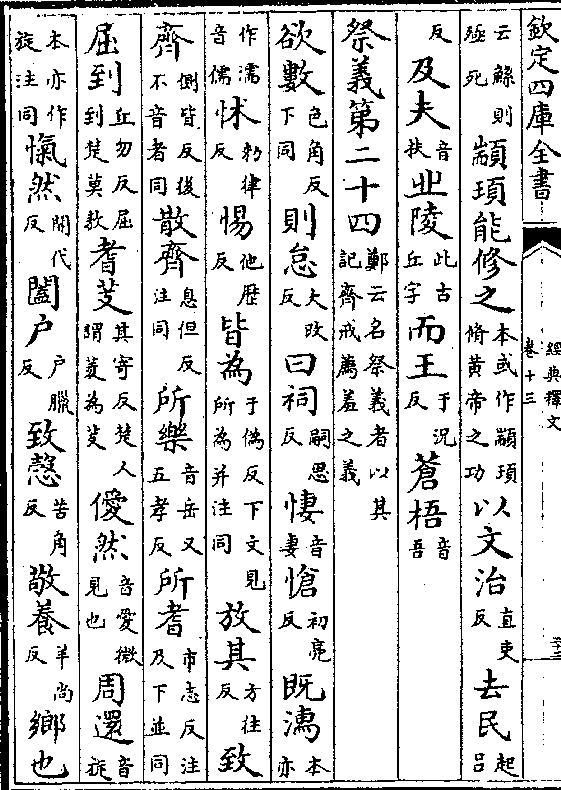 欽定四庫全書
經典釋文
卷十三
云鯀則殛死顓頊能修之本或作顓頊脩黄帝之功以文治直吏反去民起吕
反及夫音扶丠陵此古丘字而王于況反蒼梧音吾
祭義第二十四鄭云名祭義者以其記齊戒薦羞之義
欲數色角反下同則怠大改反曰祠嗣思反悽音妻愴初亮反既本亦
作濡音儒怵勑律反惕他歴反皆為于偽反下文見所為并注同放其方往反致
齊側皆反後不音者同散齊息但反注同所樂音岳又五孝反所耆市志反注及下並同
屈到丘勿反屈到楚莫敖耆芰其寄反楚人謂菱為芰僾然音愛微見也周還音旋
本亦作旋注同愾然開代反闔户户臘反致慤苦角反敬養羊尚反鄉也